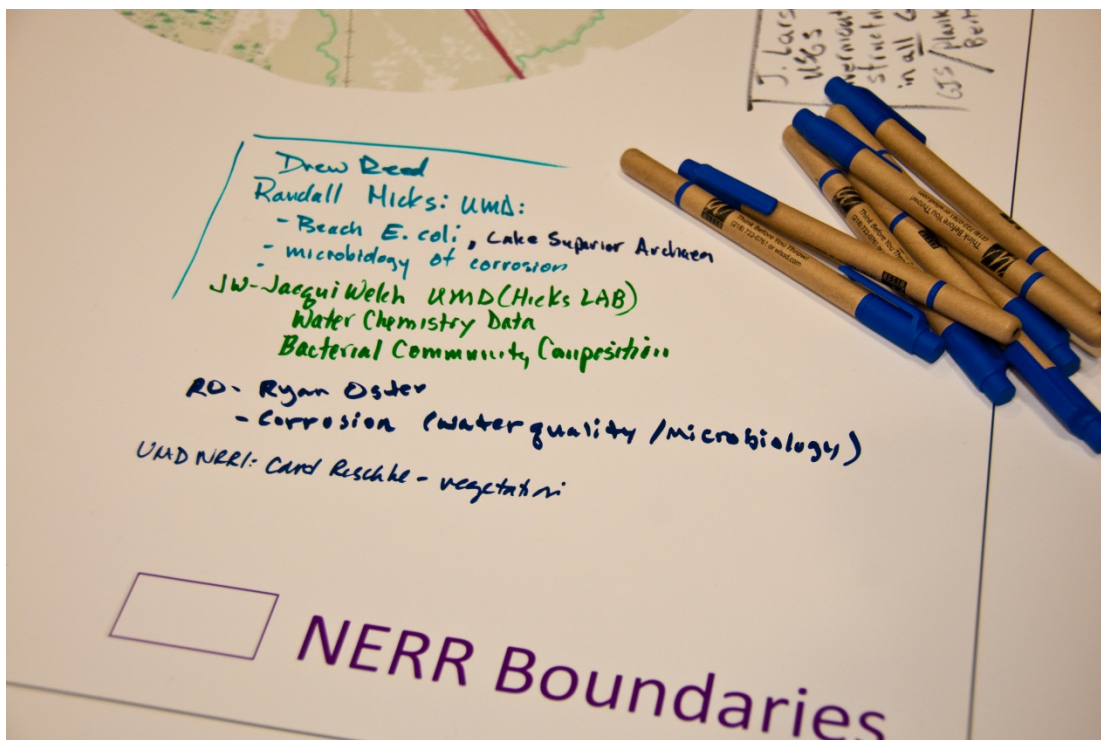 J. Lars
USGS
in all
GIS/plank
Drew Reed
Randall Hicks: UMD:
- Beach E. coli, Lake Superior Archaea
- microbiology of corrosion
-
JW-Jacqui Welch UMD (Hicks LAB)
Water Chemistry Data
Bacterial Community Composition
RO- Ryan Oster
- Corrosion (water quality /Microbiology)
UMD NRRI: Carol Reschke - vegetation
NERR Boundaries
Think Before You Throw!
(218) 722-0761 or wlssd.com
Think Before You Throw!
Think Before You Throw!